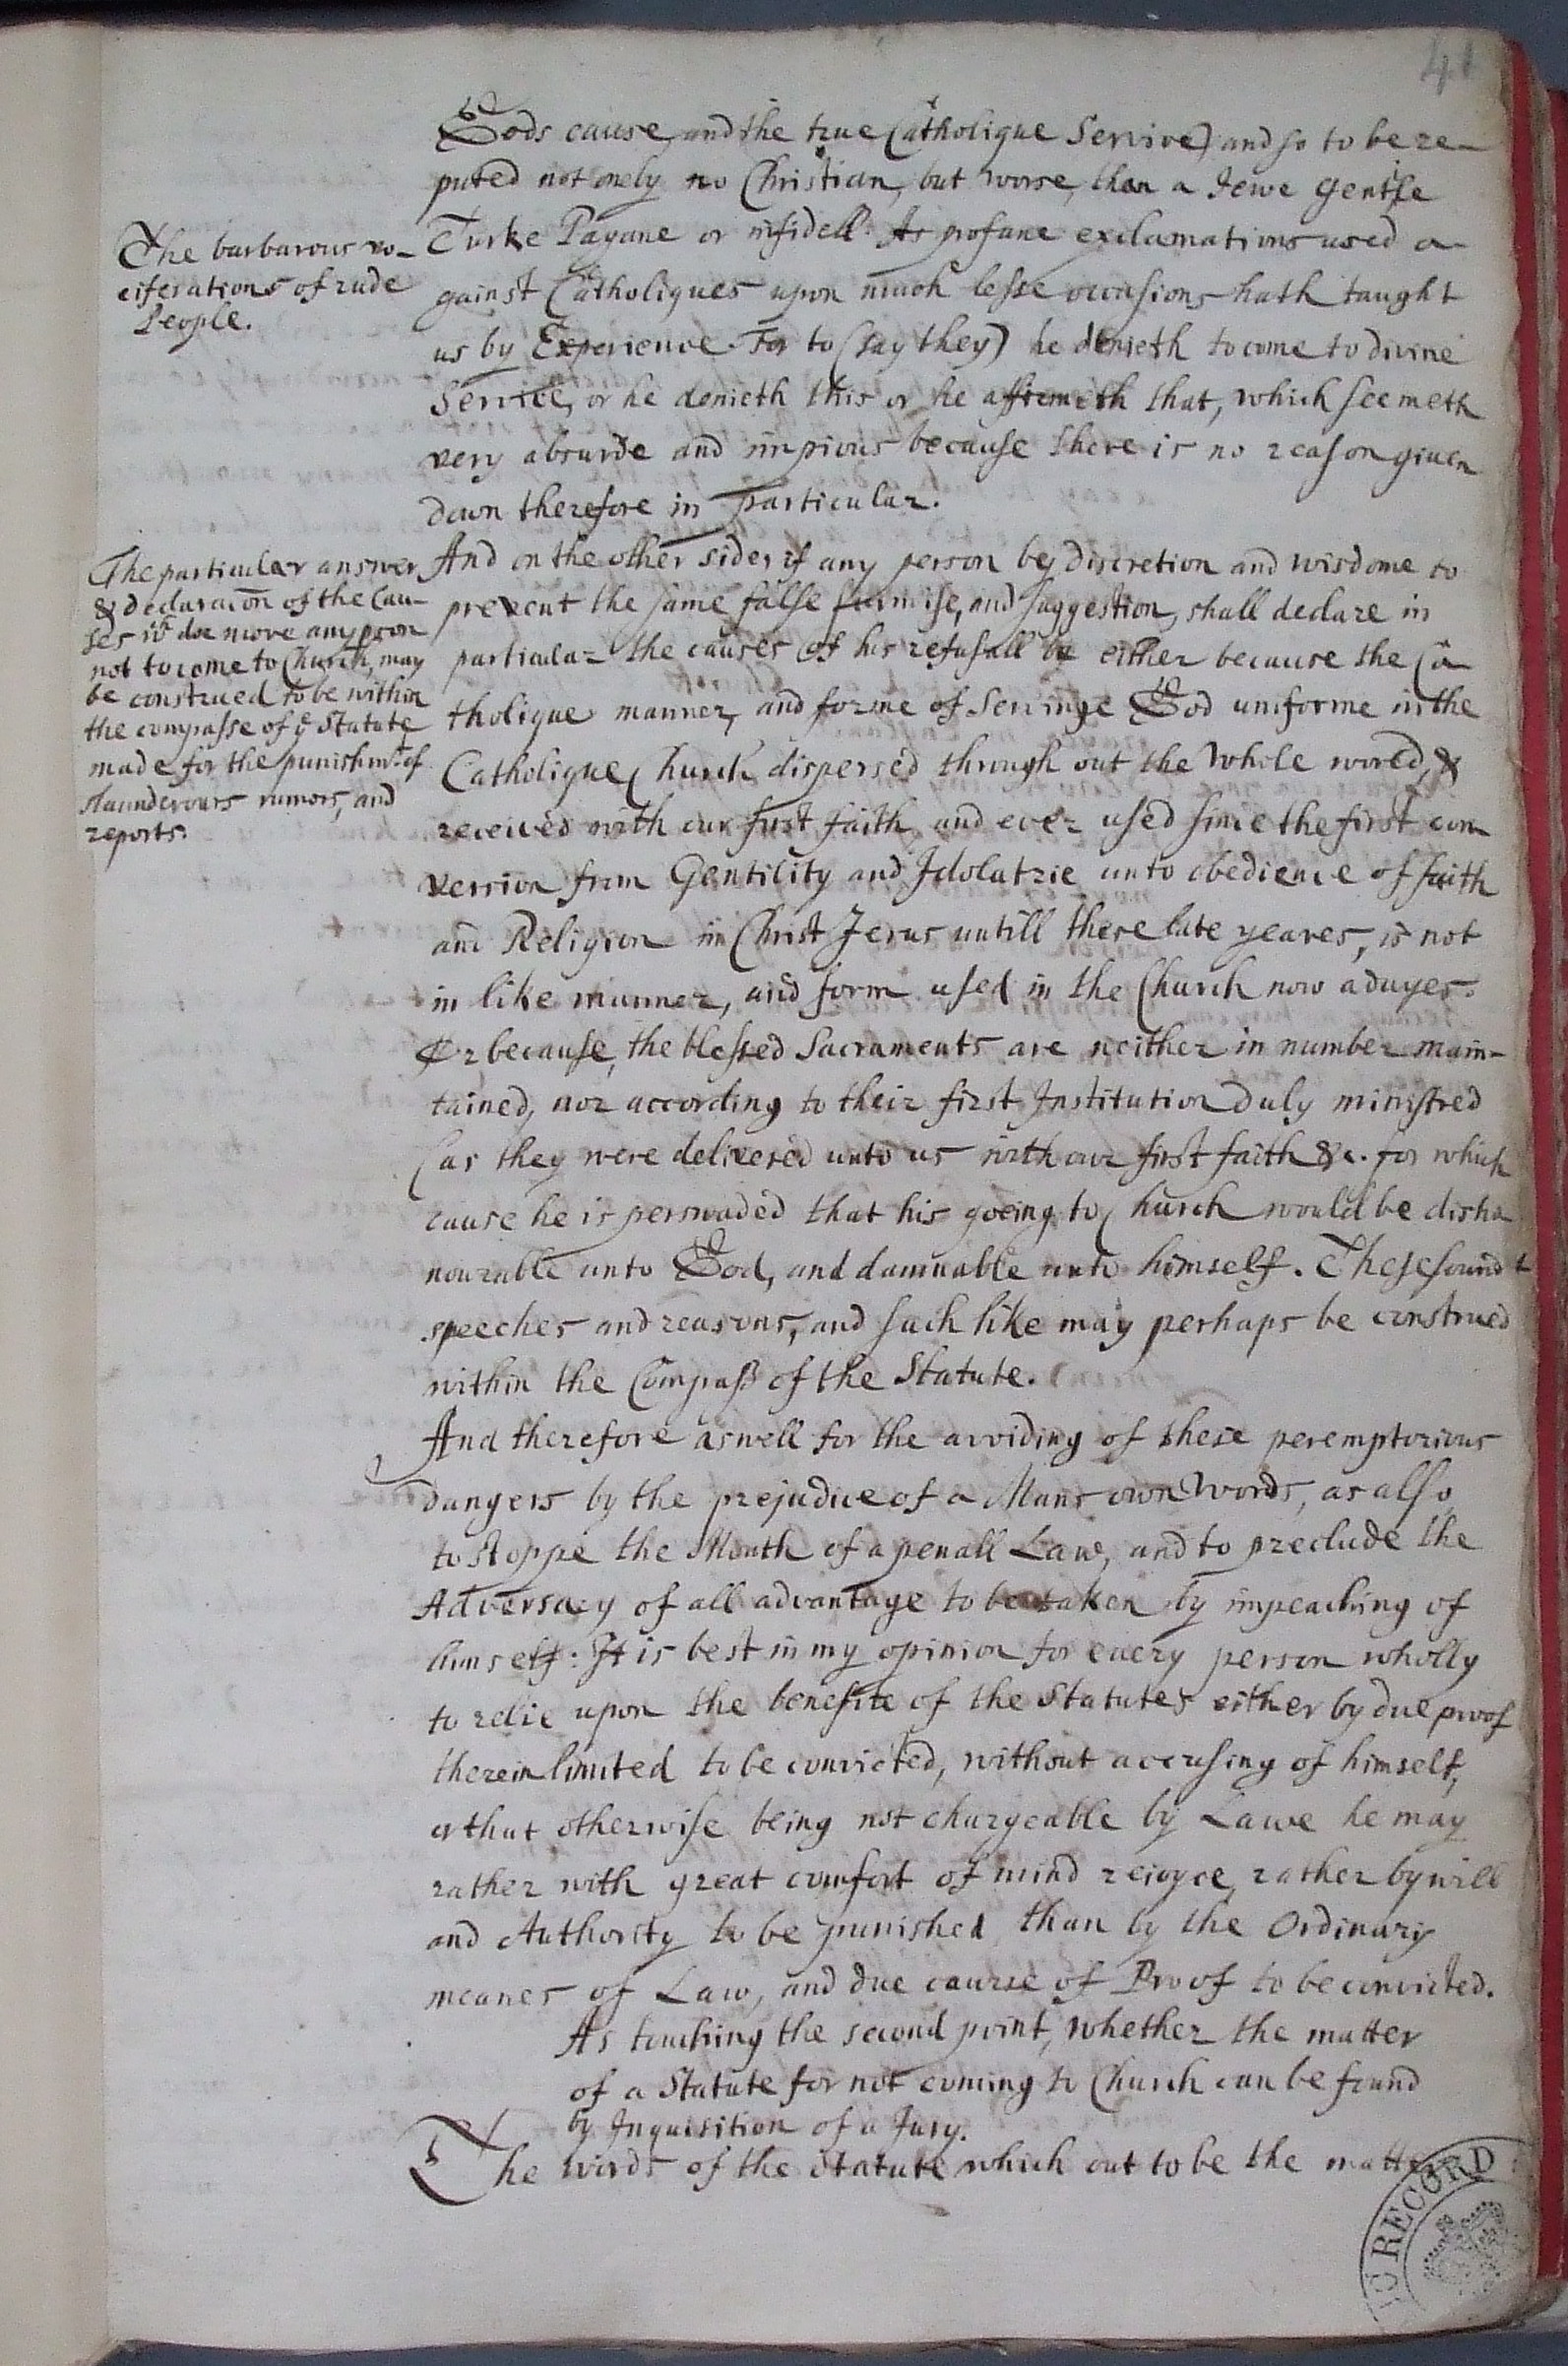 41
Gods cause and the true Catholique Service) and so to be re-
puted not onely no Christian, but worse, than a Jewe Gentile
Turke Pagane or infidell. As profane exclamations used a-
gainst Catholiques upon much lesse occasions hath taught
us by Experience. For to (say they) he denieth to come to divine
Service, or he denieth this or he affirmeth that, which seemeth
very absurde and impious because there is no reason given
down therefore in particular.
The barbarous vo-
ciferations of rude
People.
And on the other side, if any person by discretion and wisdome to
prevent the same false surmise, and suggestion, shall declare in
particular the causes of his refusall be either because the Ca
tholique manner, and forme of Servinge God uniforme in the
Catholique Church dispersed through out the whole world, &
received with our first faith, and ever used since the first con
version from Gentility and Idolatrie unto obedience of faith
and Religion in Christ Jesus untill these late yeares, is not
in like manner, and form used in the Church now adayes.
Or because, the blessed Sacraments are neither in number main-
tained, nor according to their first Institution duly ministred
(as they were delivered unto us with our first faith &c. for which
cause he is perswaded that his goeing to Church would be disho
nourable unto God, and damnable unto himself. These sound
speeches and reasons, and such like may perhaps be construed
within the Compass of the Statute.
The particular answer
& declaracon of the Cau-
ses wch doe move any pson
not to come to Church, may
be construed to be within
the compasse of ye Statute
made for the punishmt of
slaunderours rumors, and
reports.
And therefore aswell for the avoiding of these peremptorious
dangers by the prejudice of a Mans own Words, as also
to stoppe the Mouth of a penall Law, and to preclude the
Adversary of all advantage to be taken by impeaching of
himself: It is best in my opinion for every person wholly
to relie upon the benefite of the Statutes either by due proof
therein limited to be convicted, without accusing of himself,
or that otherwise being not chargeable by Lawe he may
rather with great comfort of mind reioyce, rather by will
and Authority to be punished than by the Ordinary
meanes of Law, and due course of Proof to be convicted.
As touching the second point, whether the matter
of a Statute for not coming to Church can be found
by Inquisition of a Jury.
The words of the Statute which out to be the matter
RECORD